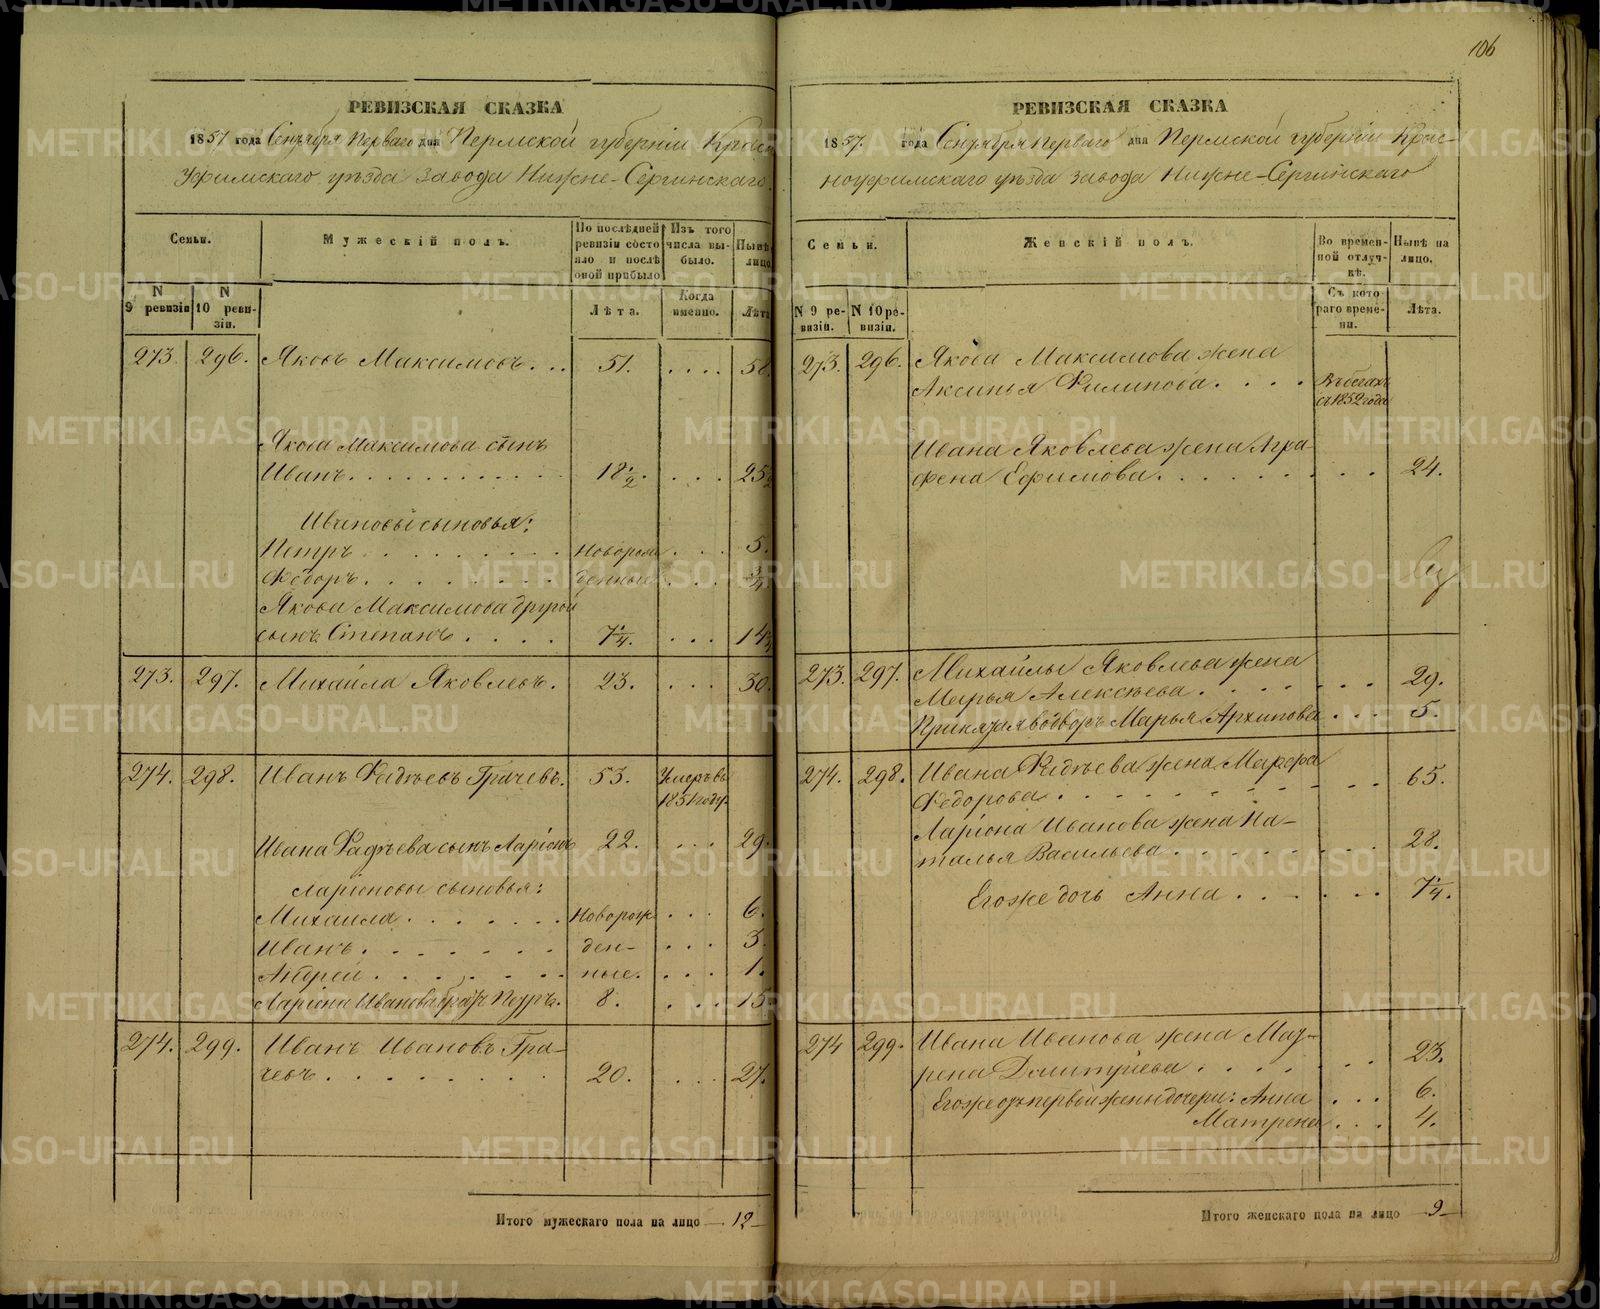 106
РЕВИЗСКАЯ СКАЗКА
1857 года Сентября Перваго дня Пермской губерніи Красно
Уфимскаго уѣзда завода Нижне-Сергинскаго
Семьи.
Мужескій полъ.
По послѣдней ревизіи состояло и послѣ оной прибыло
Изъ того числа выбыло.
Нынѣ на лицо
N 9 ревизіи
N 10 ревизіи.
Лѣта.
Когда именно.
Лѣта
273. 296. Яковъ Максимовъ . . . 51. . . . . 58.
Якова Максимова сынъ
Иванъ . . . . . . . . . . . 18 1/2. . . . . 25 1/2
Ивановы сыновья:
Петръ . . . . . . . . . Новорож . . . 5.
Федоръ . . . . . . . . денные . . . 3/4
Якова Максимова другой
сынъ Степанъ . . . . 7 1/4. . . . 14
273. 297. Михайла Яковлевъ. 23. . . . 30.
274. 298. Иванъ Фадѣевъ Грачевъ. 53. Умеръ въ
1851 году
Ивана Фадѣева сынъ Ларіонъ 22. . . . 29.
Ларіоновы сыновья:
Михаила . . . . . . . Новорож . . . 6.
Иванъ . . . . . . . ден- . . . 3.
Андрей . . . . . . . ные. . . . 1.
Ларіона Иванова братъ Петръ. 8. . . . 15
274. 299. Иванъ Ивановъ Гра-
чевъ . . . . . . . . . 20. . . . 27.
Итого мужескаго пола на лицо — 12 —
РЕВИЗСКАЯ СКАЗКА
1857. года Сентября Перваго дня Пермской губерніи Крас-
ноуфимскаго уѣзда завода Нижне-Сергинскаго
Семьи.
Женскій полъ.
Во временной отлучкѣ.
Нынѣ на лицо.
N 9 ревизіи.
N 10 ревизіи.
Съ котораго времени.
Лѣта.
273. 296. Якова Максимова жена
Аксинья Филипова . . . . Въ бѣгахъ
съ 1852 года
Ивана Яковлева жена Агра-
фена Ефимова . . . . . . . . . 24.
273. 297. Михайлы Яковлева жена
Марья Алексѣева . . . . . . . 29.
Марья Архипова . . . 5.
274. 298. Ивана Фадѣева жена Марфа
Федорова . . . . . . . . . . . 65.
Ларіона Иванова жена На-
талья Васильева . . . . . . . . 28.
Егоже дочь Анна . . . . . . 7 1/4.
274 299. Ивана Иванова жена Мат-
рена Дмитріева . . . . . . . 23.
Егоже отъ первой жены дочери: Анна . . . 6.
Матрена . . . 4.
Итого женскаго пола на лицо — 9 —
METRIKI.GASO-URAL.RU